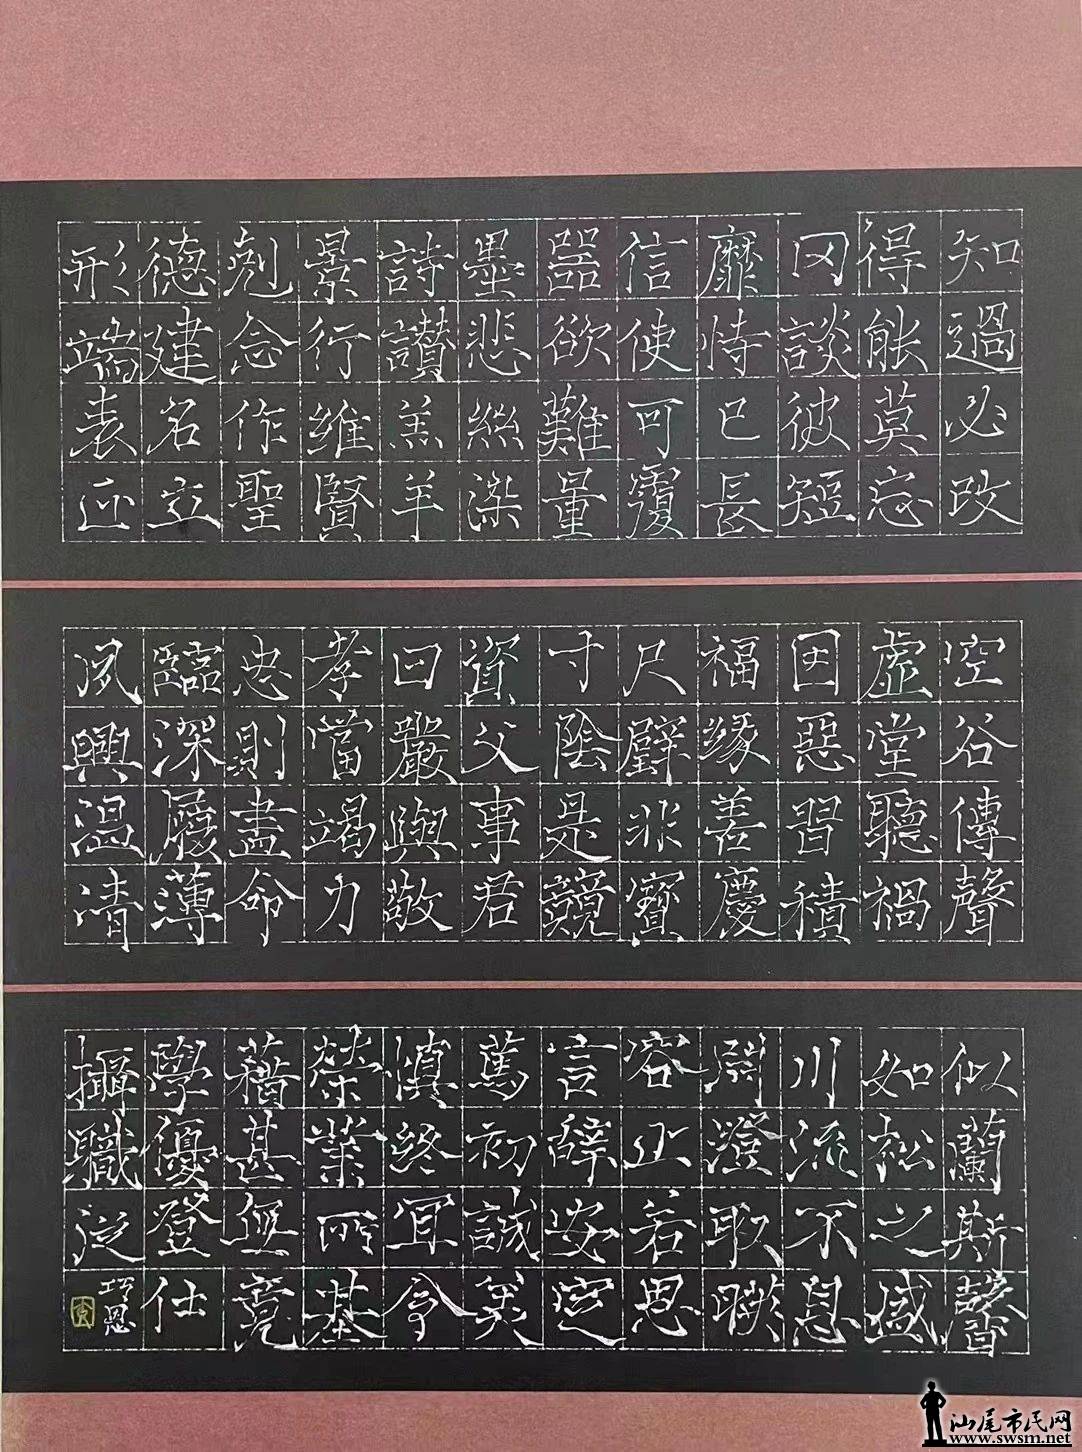 知過必改
得能莫忘
罔談彼短
靡恃己長
信使可覆
器欲難量
墨悲絲染
詩讚羔羊
景行維賢
剋念作聖
德建名立
形端表正
空谷傳聲
虛堂聽禍
因惡習積
福緣善慶
尺璧非寶
寸陰是競
資父事君
曰嚴與敬
孝當竭力
忠則盡命
臨深履薄
夙興溫清
似蘭斯馨
如松之盛
川流不息
淵澄取暎
容止若思
言辭安定
篤初誠美
慎終宜令
榮業所基
藉甚無竟
學優登仕
攝職從
巧恩
汕尾市民网
www.swsm.net